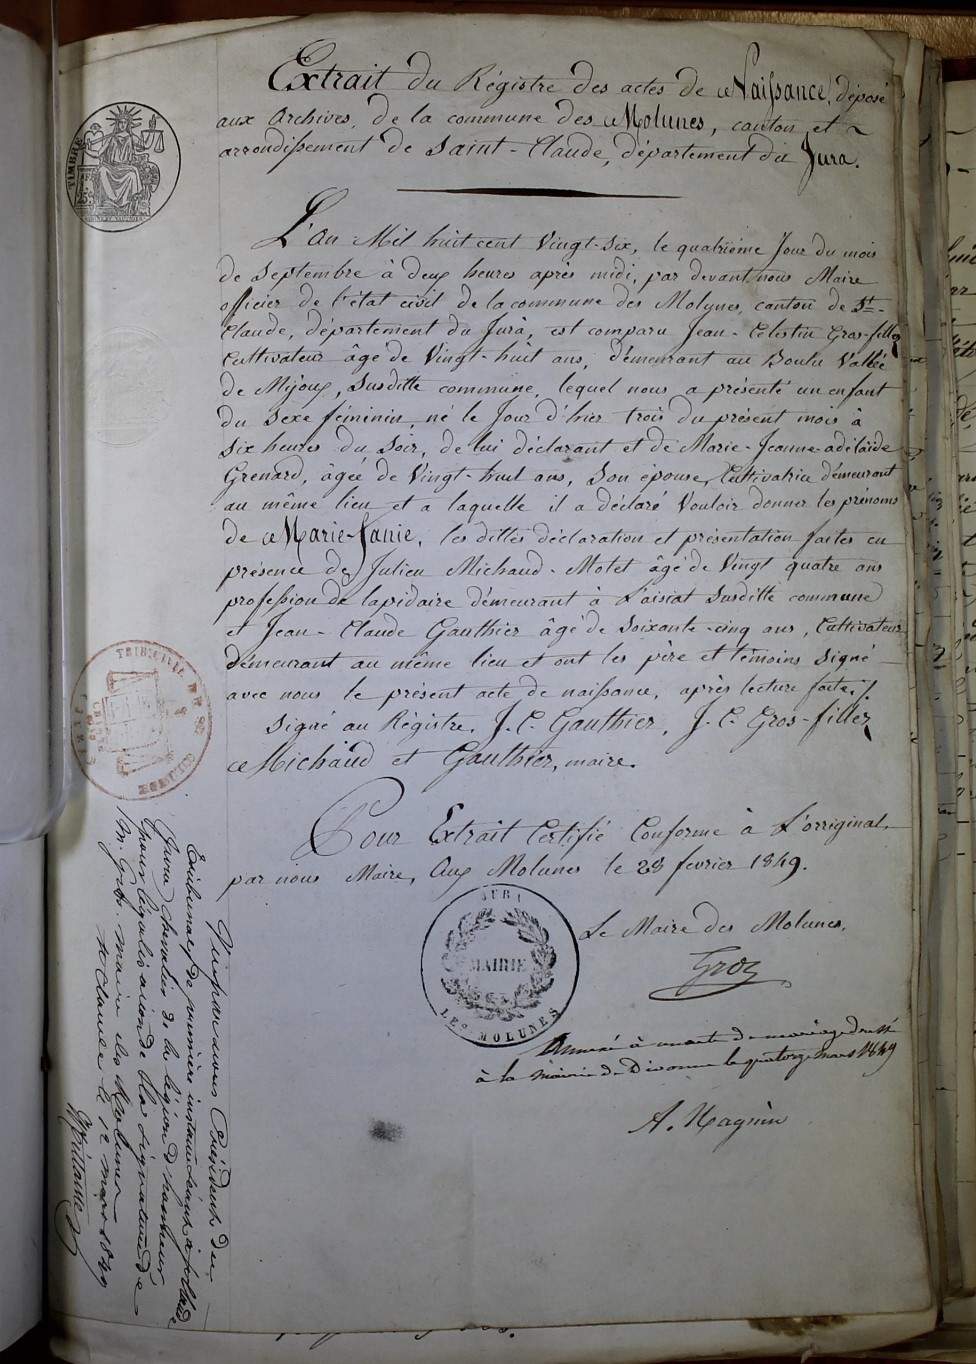 Extrait du Régistre des actes de Naissance, déposé
aux Archives, de la commune des Molunes, canton et
arrondissement de Saint-Claude, département du Jura.
L'an Mil huit cent Vingt-six, le quatrième Jour du mois
de Septembre à deux heures après midi, par devant nous Maire
officier de l'état civil de la commune des Molunes, canton de St-
Claude, département du Jura, est comparu Jean-Célestin Gros-fillez
Cultivateur âgé de Vingt-huit ans, démeurant au Boulu Vallée
de Mijoux, Susditte commune, lequel nous a présenté un enfant
du Sexe féminin, né le Jour d'hier trois du présent mois à
Six heures du Soir, de lui déclarant et de Marie-Jeanne-adélaïde
Grenard, âgée de Vingt-huit ans, Son épouse, Cultivatrice démeurant
au même lieu et a laquelle il a déclaré Vouloir donner les prénoms
de Marie-Janie, les dittes déclaration et présentation faites en
présence de Julien Michaud-Motet âgé de Vingt quatre ans
profession de lapidaire démeurant à L'aisiat Susditte commune
et Jean-Claude Gauthier âgé de Soixante-cinq ans, Cultivateur
démeurant au même lieu et ont les père et témoins Signé
avec nous le présent acte de naissance, après lecture faite./.
Signé au Régistre, J. C. Gauthier, J. C. Gros-fillez
Michaud et Gauthier, maire.
Pour Extrait Certifié Conforme à L'orriginal,
par nous Maire, Aux Molunes le 28 fevrier 1849.
Le Maire des Molunes,
Groz
JURA
MAIRIE
LES MOLUNES
Annexé à un acte de mariage dressé
à la mairie de Divonne le quatorze mars 1849
A. Magnin
TIMBRE
TRIB. CIVIL DE ST CLAUDE
Vu par nous Président du
Tribunal de première instance séant à St Claude
Jura chevalier de la légion d'honneur
pour légalisation de la signature de
Mr. Groz maire des Molunes
St Claude le 12 mars 1849